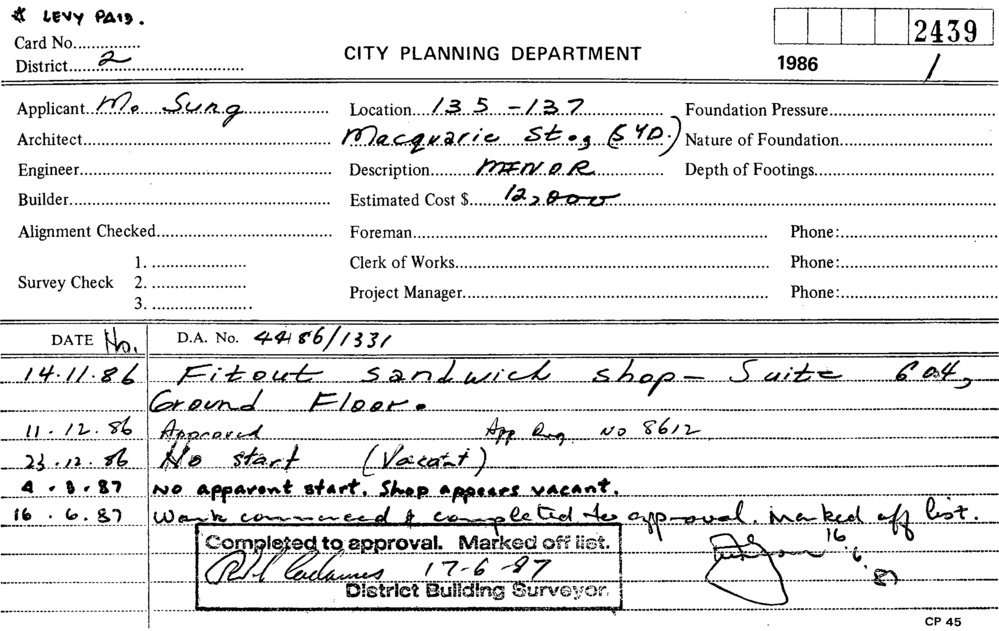 * LEVY PAID.
Card No.
District 2
CITY PLANNING DEPARTMENT
2439
1986 /
Applicant Mr Sung Location 135 - 137 Foundation Pressure
Architect Macquarie St., (SYD.) Nature of Foundation
Engineer Description MINOR Depth of Footings
Builder Estimated Cost $ 12,000
Alignment Checked Foreman Phone:
Survey Check 1. 2. 3.
Clerk of Works Phone:
Project Manager Phone:
DATE No. D.A. No. 44 86/1331
14.11.86 Fitout sandwich shop - Suite 604,
Ground Floor.
11.12.86 Approved App Reg No 8612
23.12.86 No start (Vacant)
4.3.87 No apparent start. Shop appears vacant.
16.6.87 Work commenced & completed to approval. Marked off list.
16.6.87
Completed to approval. Marked off list.
17-6-87
District Building Surveyor
CP 45